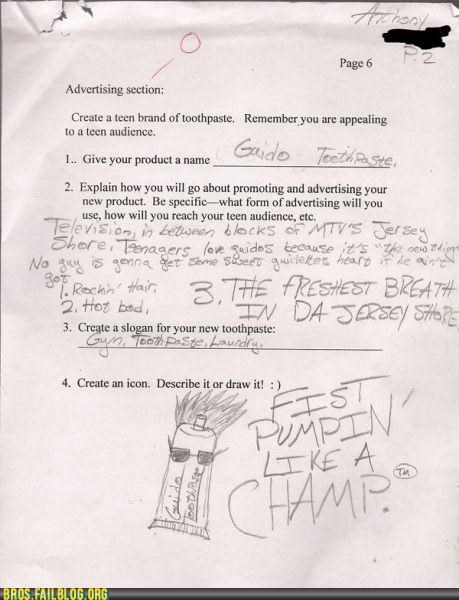 Anthony
P.2
Page 6
Advertising section:
Create a teen brand of toothpaste. Remember you are appealing
to a teen audience.
1.. Give your product a name Guido Toothpaste.
2. Explain how you will go about promoting and advertising your
new product. Be specific—what form of advertising will you
use, how will you reach your teen audience, etc.
Television, in between blocks of MTV's Jersey
Shore, Teenagers love guidos because it's "the new thing"
No guy is gonna get some sweet guidettes heart if he ain't
got
1. Rockin' Hair.
2. Hot bod.
3. THE FRESHEST BREATH
IN DA JERSEY SHORE
3. Create a slogan for your new toothpaste:
Gym, Toothpaste, Laundry.
4. Create an icon. Describe it or draw it! : )
Guido
Toothpaste
FIST
PUMPIN'
LIKE A
CHAMP.
TM
BROS.FAILBLOG.ORG